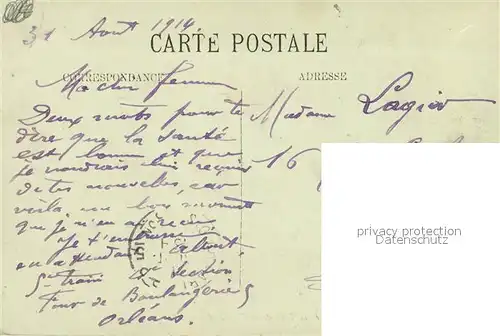 31 Aout 1914
CARTE POSTALE
CORRESPONDANCE
ADRESSE
Ma cher femme
Deux mots pour te
dire que la santé
est bonne et que
je voudrais bien reçevoir
de tes nouvelles, car
voila un bon moment
que je n'en ai reçu
Je t'embrasse
en attendant Albert
5e train section
Four de Boulangerie 5
Orléans.
Madame Lagier
16
privacy protection
watermark